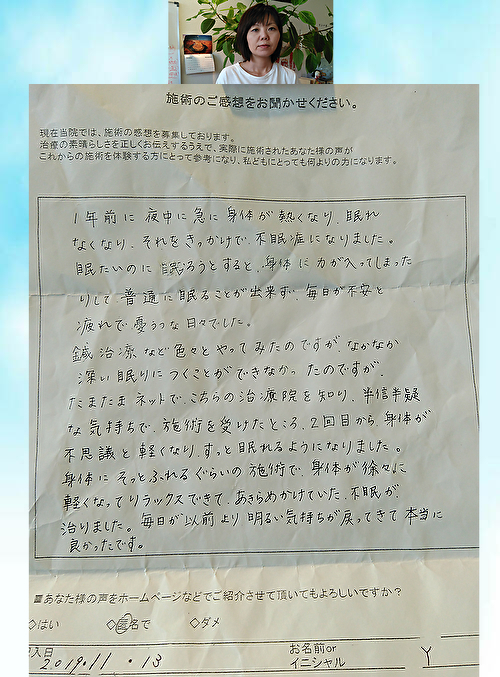 施術のご感想をお聞かせください。
現在当院では、施術の感想を募集しております。
治療の素晴らしさを正しくお伝えするうえで、実際に施術されたあなた様の声が
これからの施術を体験する方にとって参考になり、私どもにとっても何よりの力になります。
1年前に夜中に急に身体が熱くなり、眠れ
なくなり、それをきっかけで、不眠症になりました。
眠たいのに眠ろうとすると、身体に力が入ってしまった
りして普通に眠ることが出来ず、毎日が不安と
疲れで憂うつな日々でした。
鍼治療など色々とやってみたのですが、なかなか
深い眠りにつくことができなかったのですが、
たまたまネットで、こちらの治療院を知り、半信半疑
な気持ちで、施術を受けたところ、2回目から、身体が
不思議と軽くなり、すっと眠れるようになりました。
身体にそっとふれるぐらいの施術で、身体が徐々に
軽くなってリラックスできて、あきらめかけていた、不眠が、
治りました。毎日が以前より明るい気持ちが戻ってきて本当に
良かったです。
あなた様の声をホームページなどでご紹介させて頂いてもよろしいですか？
◇はい ◇匿名で ◇ダメ
入日 2019.11.13 お名前or
イニシャル Y